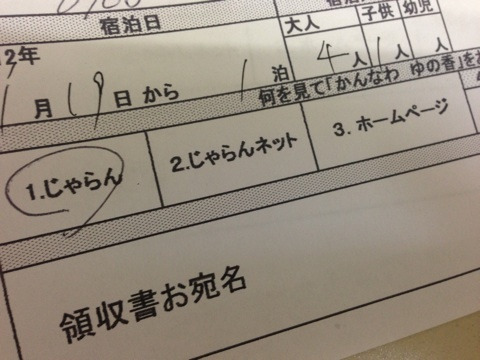 宿泊日
大人 子供 幼児
2年
1月19日から 1泊 4人 1人 人
何を見て「かんなわ ゆの香」をお
1.じゃらん 2.じゃらんネット 3.ホームページ
領収書お宛名